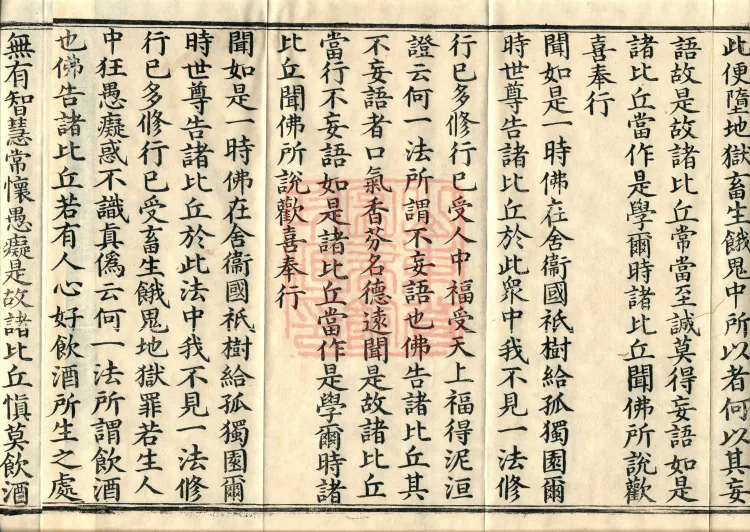 此便墮地獄畜生餓鬼中所以者何以其妄
語故是故諸比丘常當至誠莫得妄語如是
諸比丘當作是學爾時諸比丘聞佛所說歡
喜奉行
聞如是一時佛在舍衞國祇樹給孤獨園爾
時世尊告諸比丘於此衆中我不見一法修
行已多修行已受人中福受天上福得泥洹
證云何一法所謂不妄語也佛告諸比丘其
不妄語者口氣香芬名德遠聞是故諸比丘
當行不妄語如是諸比丘當作是學爾時諸
比丘聞佛所說歡喜奉行
聞如是一時佛在舍衞國祇樹給孤獨園爾
時世尊告諸比丘於此法中我不見一法修
行已多修行已受畜生餓鬼地獄罪若生人
中狂愚癡惑不識真僞云何一法所謂飲酒
也佛告諸比丘若有人心好飲酒所生之處
無有智慧常懷愚癡是故諸比丘愼莫飲酒